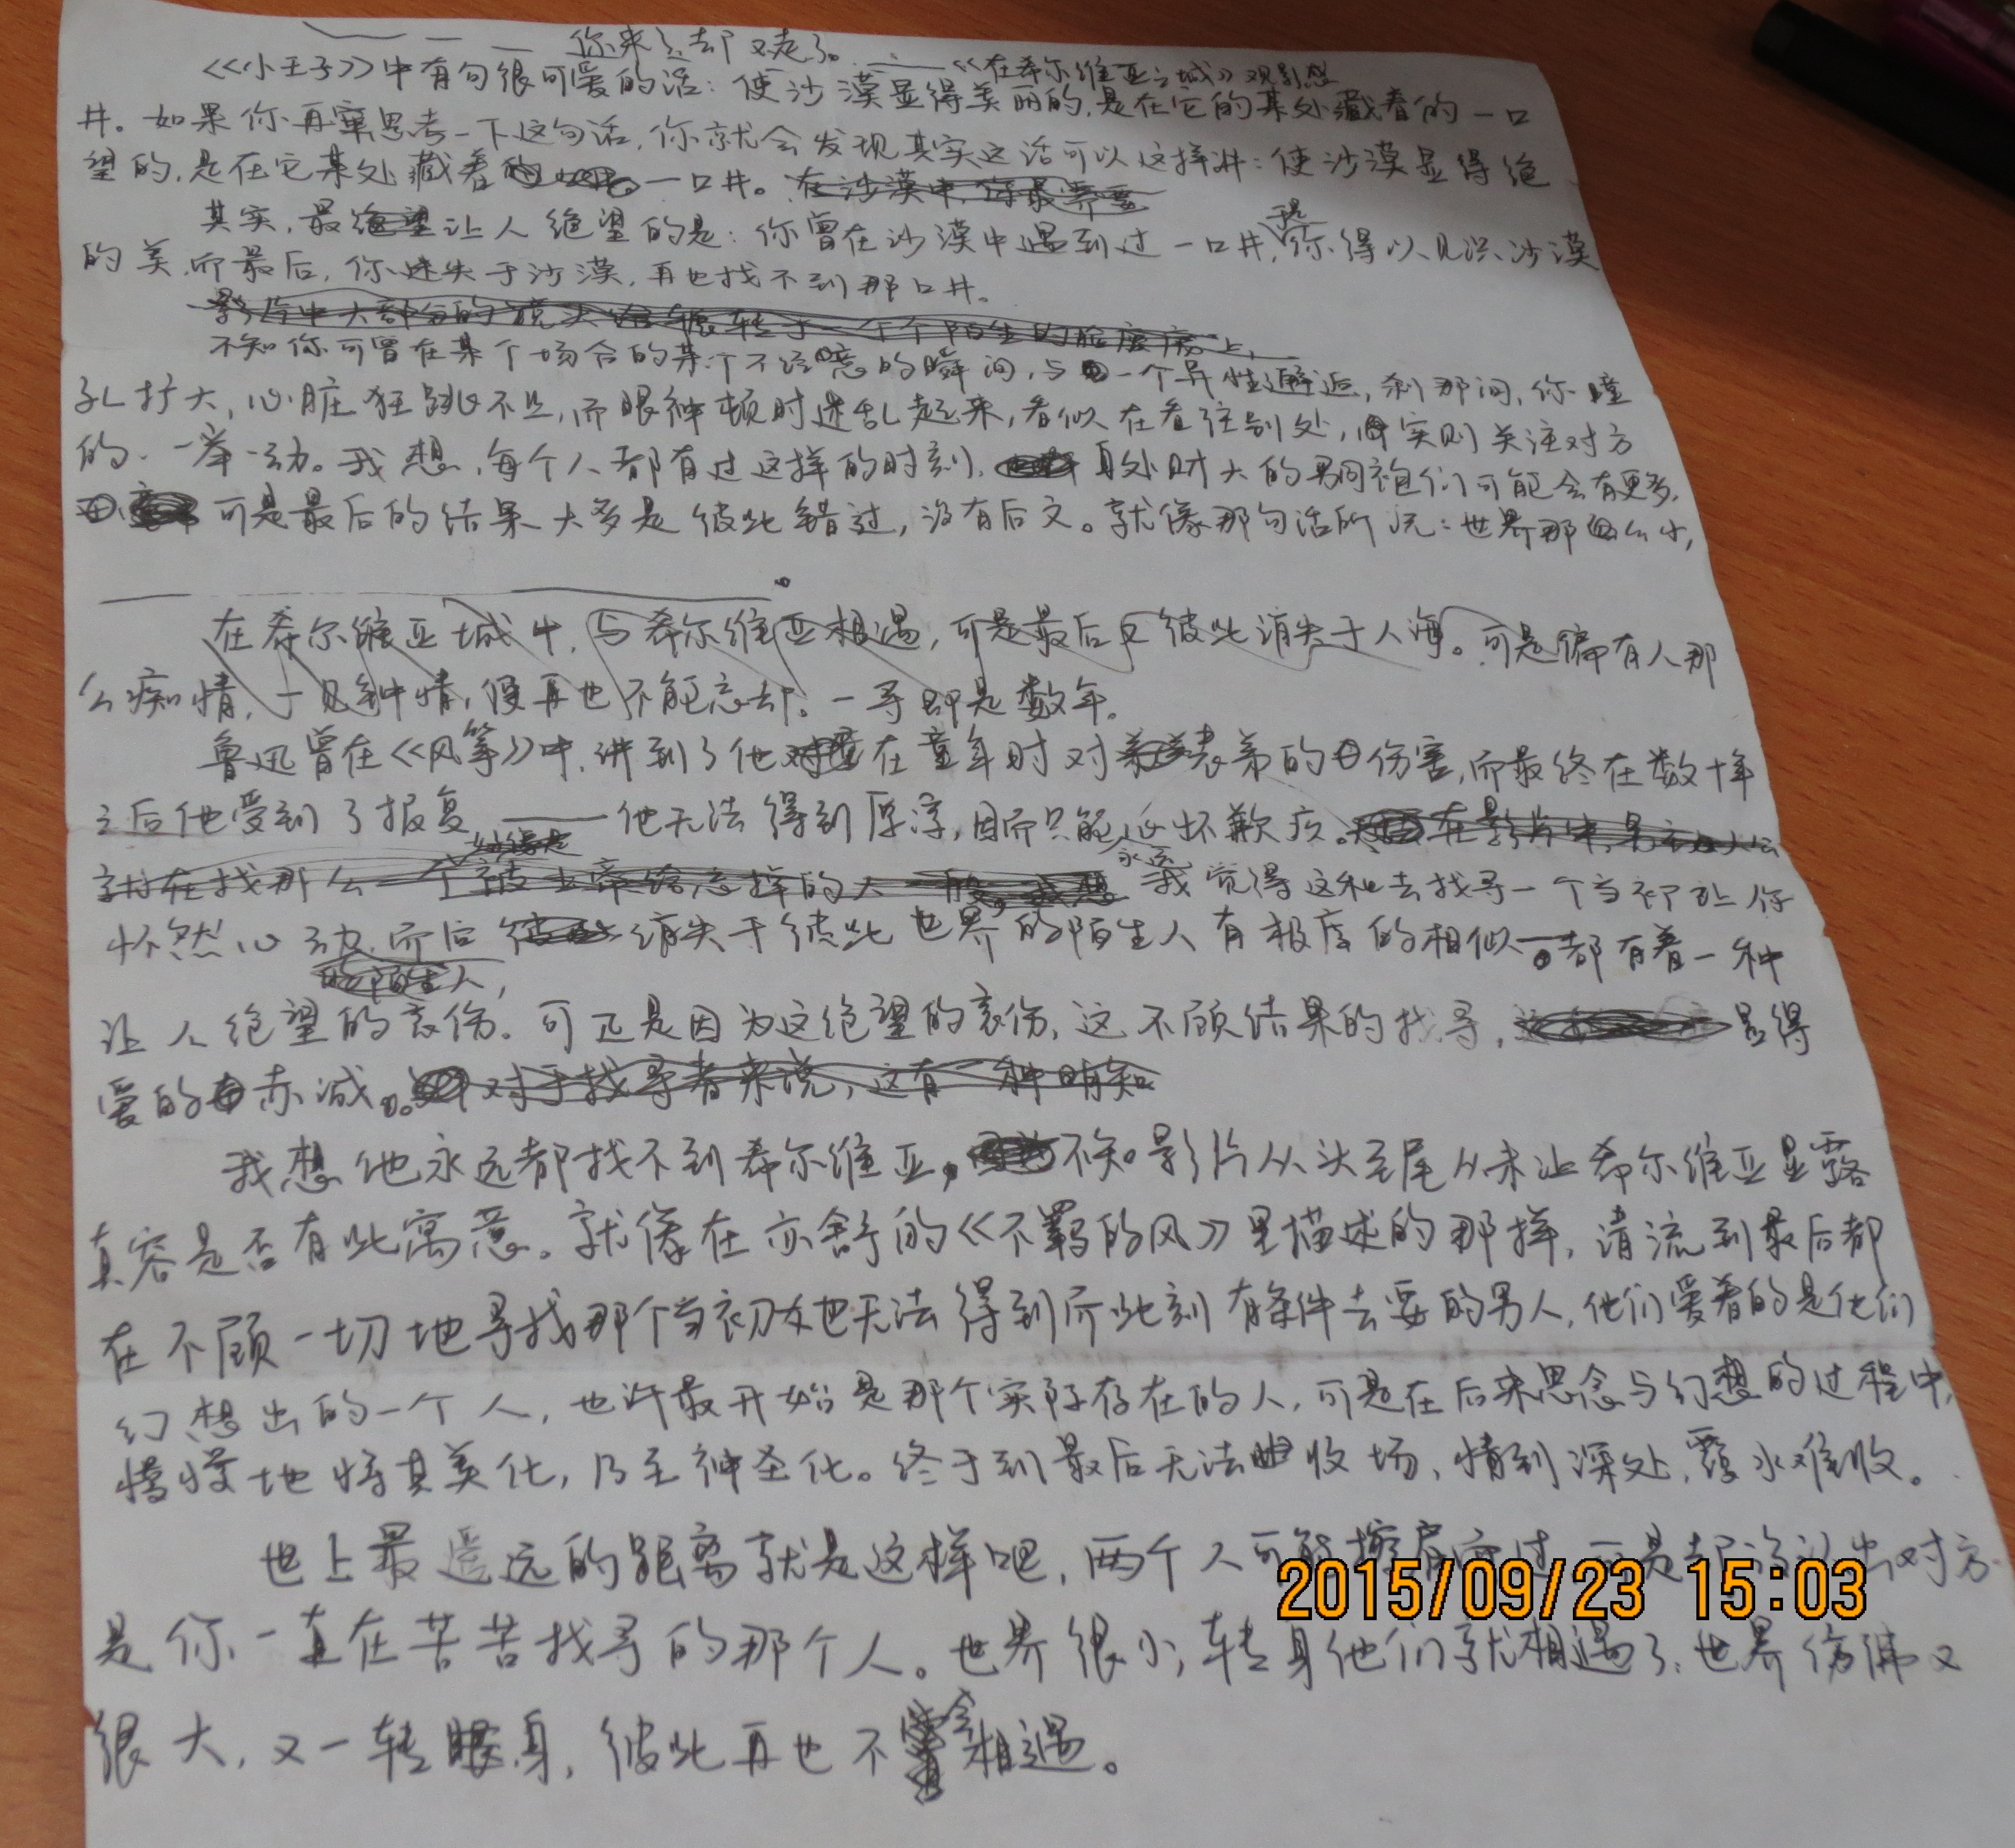 你来了却又走了。
——《在希尔维亚之城》观影想
《小王子》中有句很可爱的话：使沙漠显得美丽的，是在它的某处藏着的一口
井。如果你再窜思考一下这句话，你就会发现其实这话可以这样讲：使沙漠显得绝
望的，是在它某处藏着一口井。
其实，最让人绝望的是：你曾在沙漠中遇到过一口井，于是你得以见识沙漠
的美，而最后，你迷失于沙漠，再也找不到那口井。
影片中大部分的镜头辗转于一个个陌生的脸庞上，
不知你可曾在某个场合的某个不经意的瞬间，与一个异性邂逅，刹那间，你瞳
孔扩大，心脏狂跳不止，而眼神顿时迷乱起来，看似在看往别处，实则关注对方
的一举一动。我想，每个人都有过这样的时刻，身处财大的男同袍们可能会有更多，
可是最后的结果大多是彼此错过，没有后文。就像那句话所说：世界那么小，
——。
在希尔维亚城中，与希尔维亚相遇，可是最后又彼此消失于人海。可是偏有人那
么痴情，一见钟情，便再也不能忘却。一寻即是数年。
鲁迅曾在《风筝》中，讲到了他在童年时对弟的伤害，而最终在数十年
之后他受到了报复——他无法得到原谅，因而只能永远怀歉疚。在影片中，男主人公
我觉得这和去找寻一个当初让你
怦然心动，而后消失于彼此世界的陌生人有极度的相似——都有着一种
的陌生人，
让人绝望的哀伤。可正是因为这绝望的哀伤，这不顾结果的找寻，显得
爱的赤诚。对于找寻者来说，这有一种明知
我想他永远都找不到希尔维亚，不知影片从头至尾从未让希尔维亚显露
真容是否有此寓意。就像在亦舒的《不羁的风》里描述的那样，清流到最后都
在不顾一切地寻找那个当初友也无法得到而此刻有条件去要的男人，他们爱着的是他们
幻想出的一个人，也许最开始是那个实际存在的人，可是在后来思念与幻想的过程中，
慢慢地将其美化，乃至神圣化。终于到最后无法收场，情到深处，覆水难收。
世上最遥远的距离就是这样吧，两个人可能擦肩而过，可是却没认出对方
是你一直在苦苦找寻的那个人。世界很小，转身他们就相遇了；世界仿佛又
很大，又一转身，彼此再也不会相遇。
2015/09/23 15:03